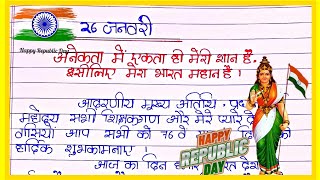 26 जनवरी
Happy Republic Day
अनेकता में एकता ही मेरी शान है,
इसीलिए मेरा भारत महान है !
आदरणीय मुख्य अतिथि, पूज
महोदय सभी शिक्षकगण और मेरे प्यारे दे
वासियों आप सभी को 76 वें
हार्दिक शुभकामनाएं !
HAPPY
REPUBLIC
DAY
आज का दिन हमारे